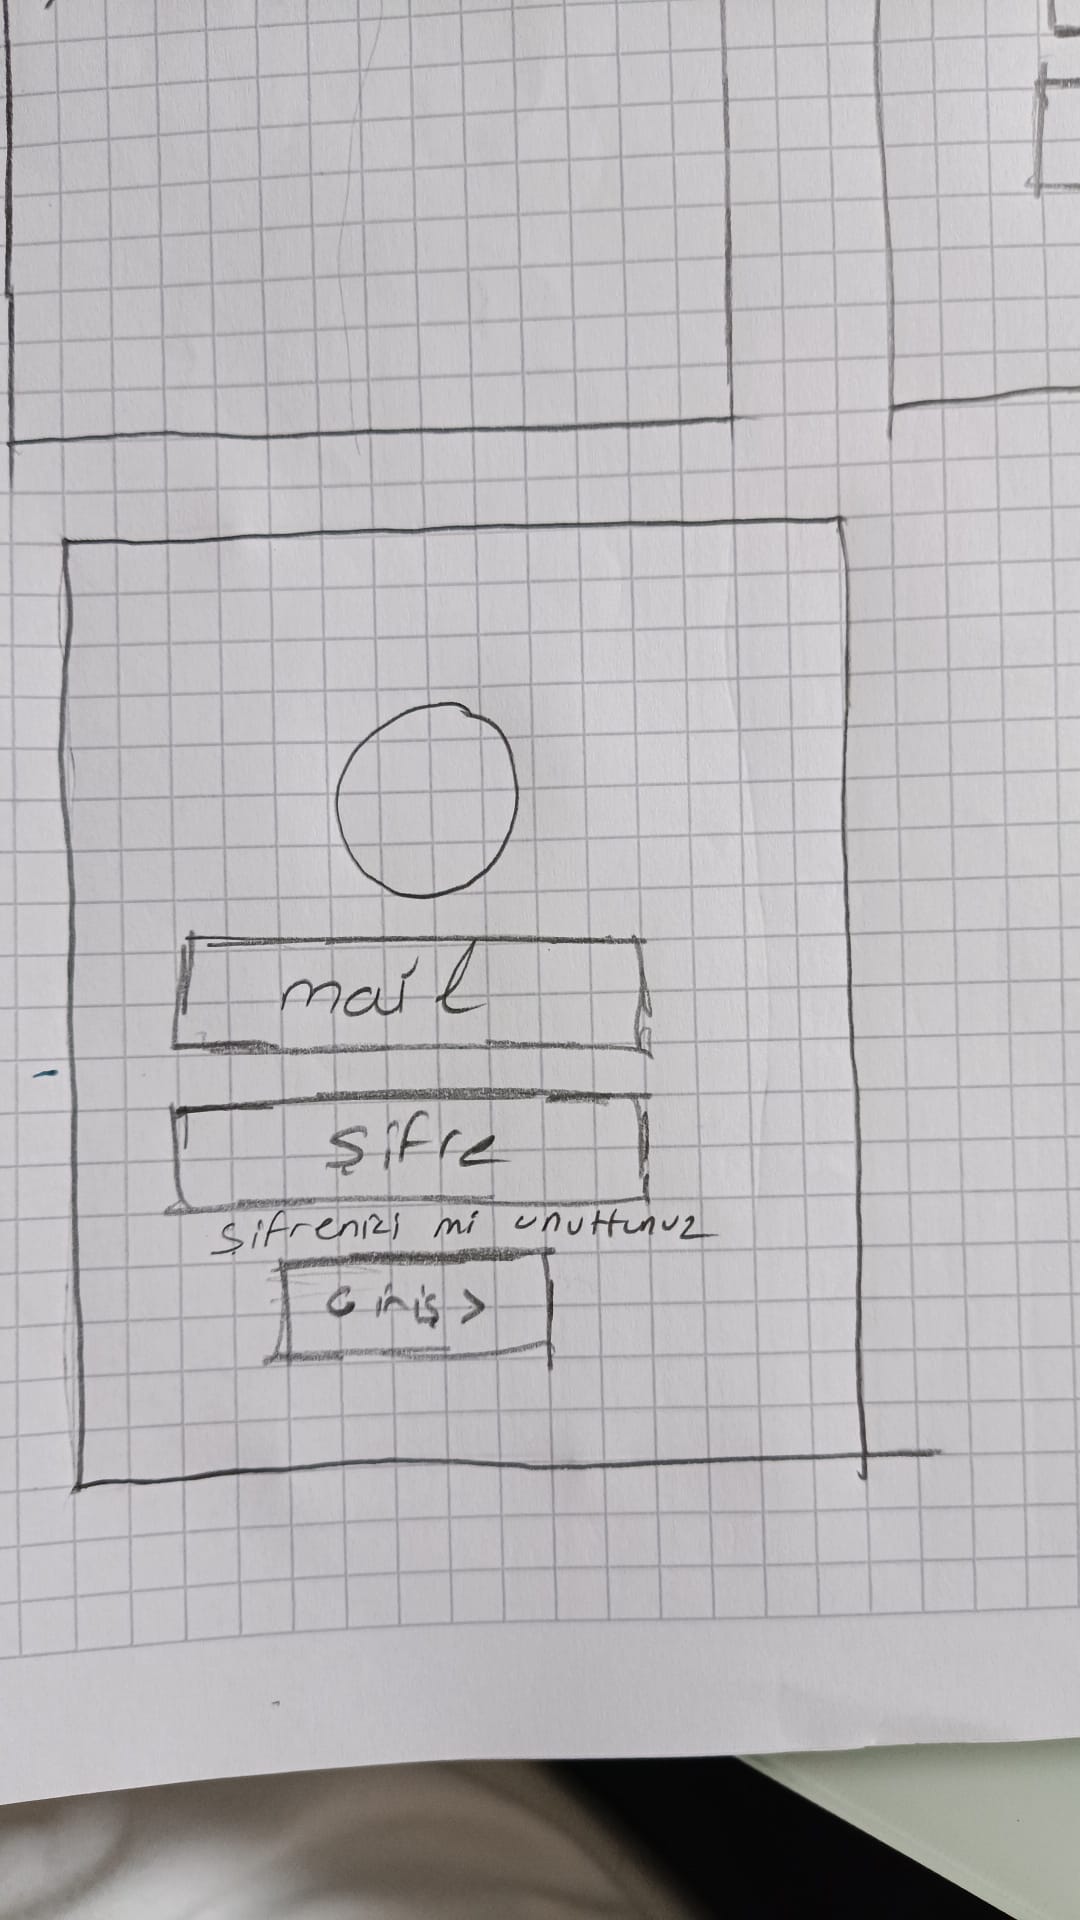 mail
şifre
şifrenizi mi unuttunuz
Giriş >